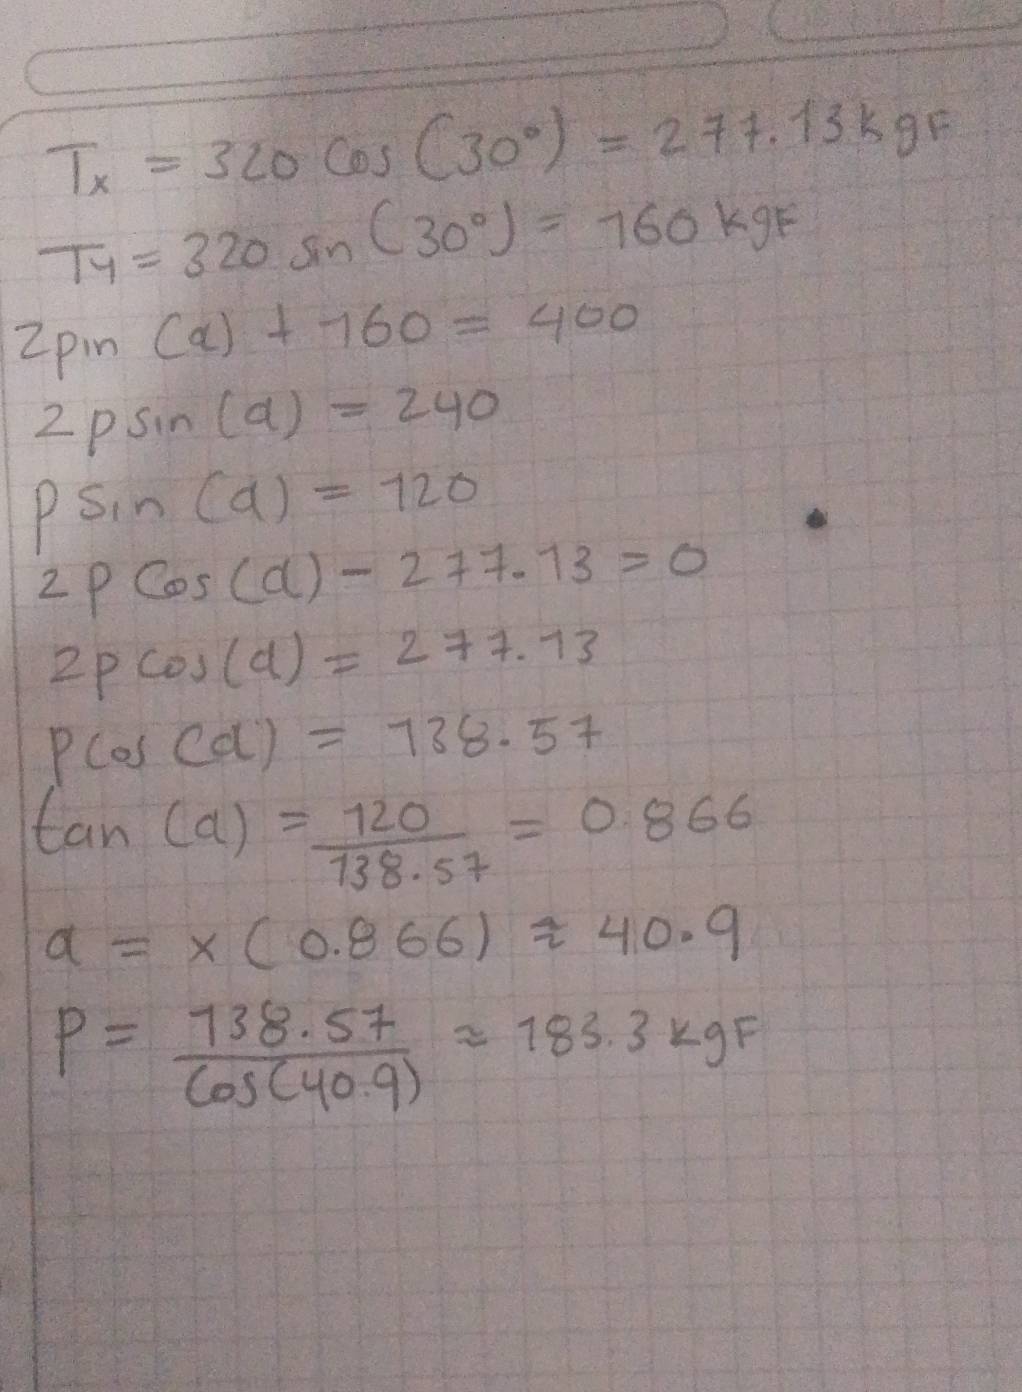 Tx = 320 cos (30°) = 277.13 kgF
Ty = 320 sin (30°) = 160 kgF
2pin (a) + 160 = 400
2p sin (a) = 240
p sin (a) = 120
2p cos (a) - 277.13 = 0
2p cos (a) = 277.13
p cos (a) = 138.57
tan (a) = 120/138.57 = 0.866
a = x (0.866) ≈ 40.9
p = 138.57/cos(40.9) ≈ 183.3 kgF